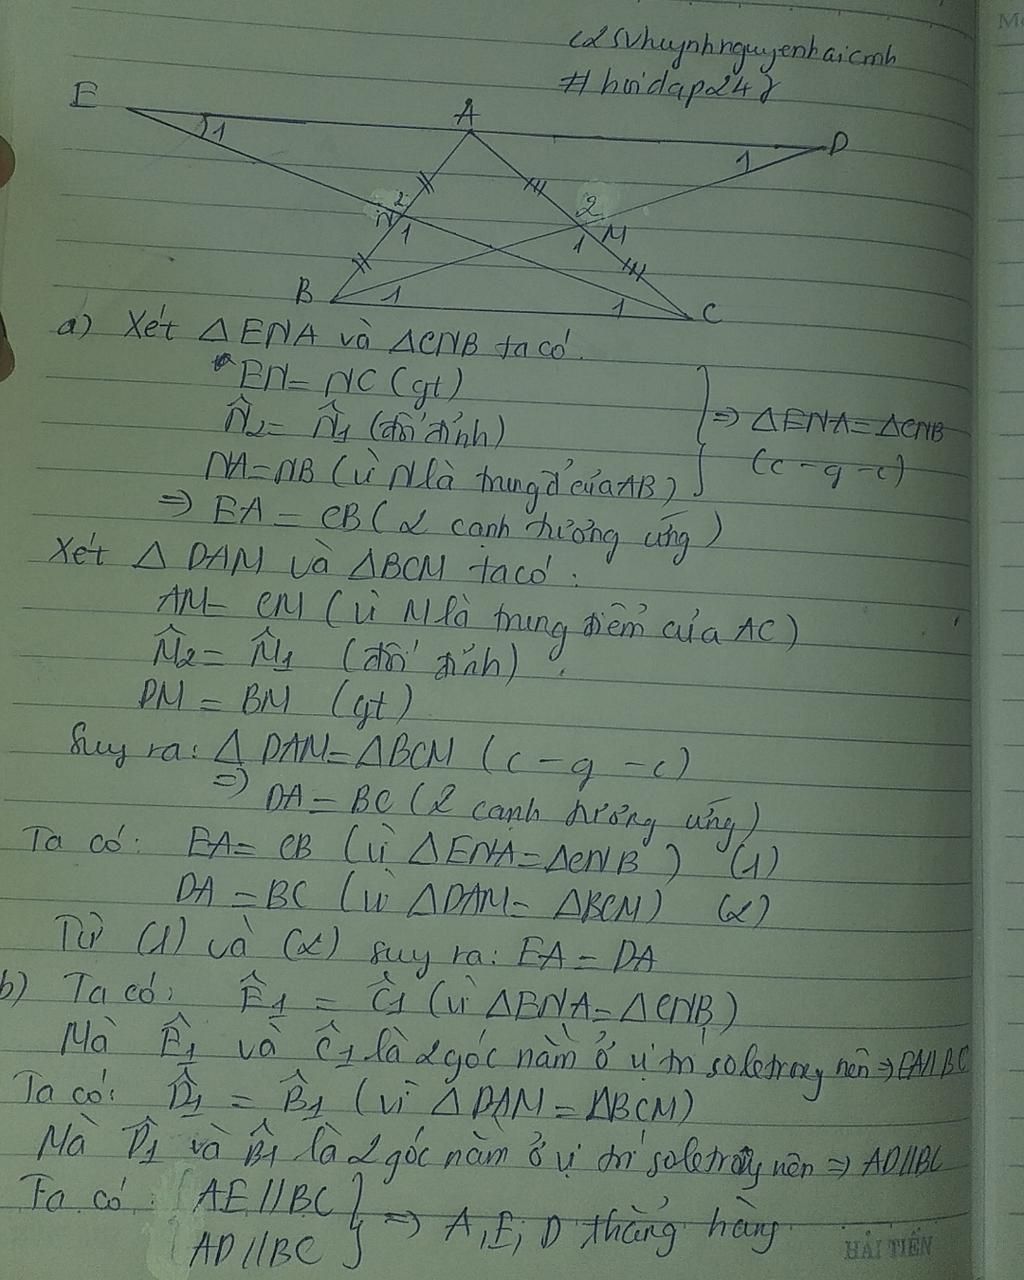 c2svhuynhnguyenhaicmh
#hoidap247
E
A
D
1
1
2
2
N
1
1
M
B
1
1
C
a) Xét △ENA và △CNB ta có.
EN = NC (gt)
N̂2 = N̂1 (đối đỉnh)
NA = NB (vì N là trung đ' của AB)
⇒ △ENA = △CNB
(c - g - c)
⇒ EA = CB (2 cạnh tương ứng)
Xét △ DAM và △BCM ta có:
AM = CM (vì M là trung điểm của AC)
M̂2 = M̂1 (đối đỉnh)
DM = BM (gt)
Suy ra: △ DAM = △BCM (c - g - c)
⇒ DA = BC (2 cạnh tương ứng)
Ta có: EA = CB (vì △ENA = △CNB) (1)
DA = BC (vì △DAM = △BCM) (2)
Từ (1) và (2) suy ra: EA = DA
b) Ta có: Ê1 = Ĉ1 (vì △ENA = △CNB)
Mà Ê1 và Ĉ1 là 2 góc nằm ở vị trí soletrong nên ⇒ EA//BC
Ta có: D̂1 = B̂1 (vì △DAM = △BCM)
Mà D̂1 và B̂1 là 2 góc nằm ở vị trí soletrong nên ⇒ AD//BC
Ta có: AE//BC
AD//BC
⇒ A, E, D thẳng hàng
HẢI TIẾN